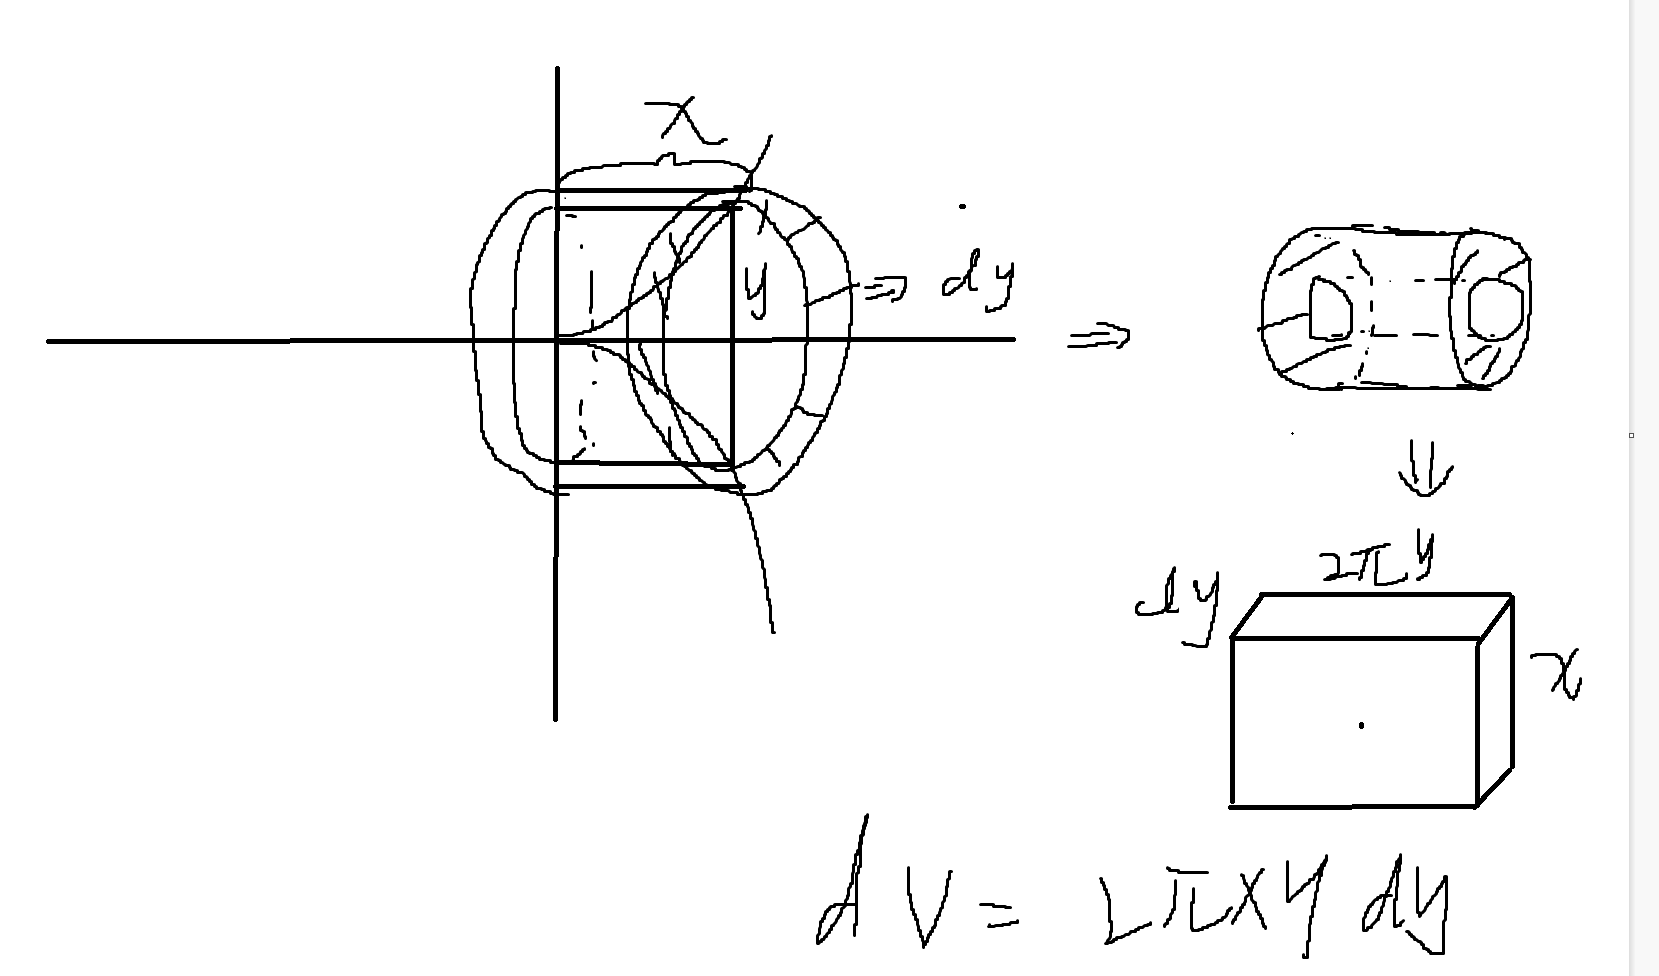 x
y
⇒ dy
⇒
⇓
2πy
dy
x
dV = 2πxy dy